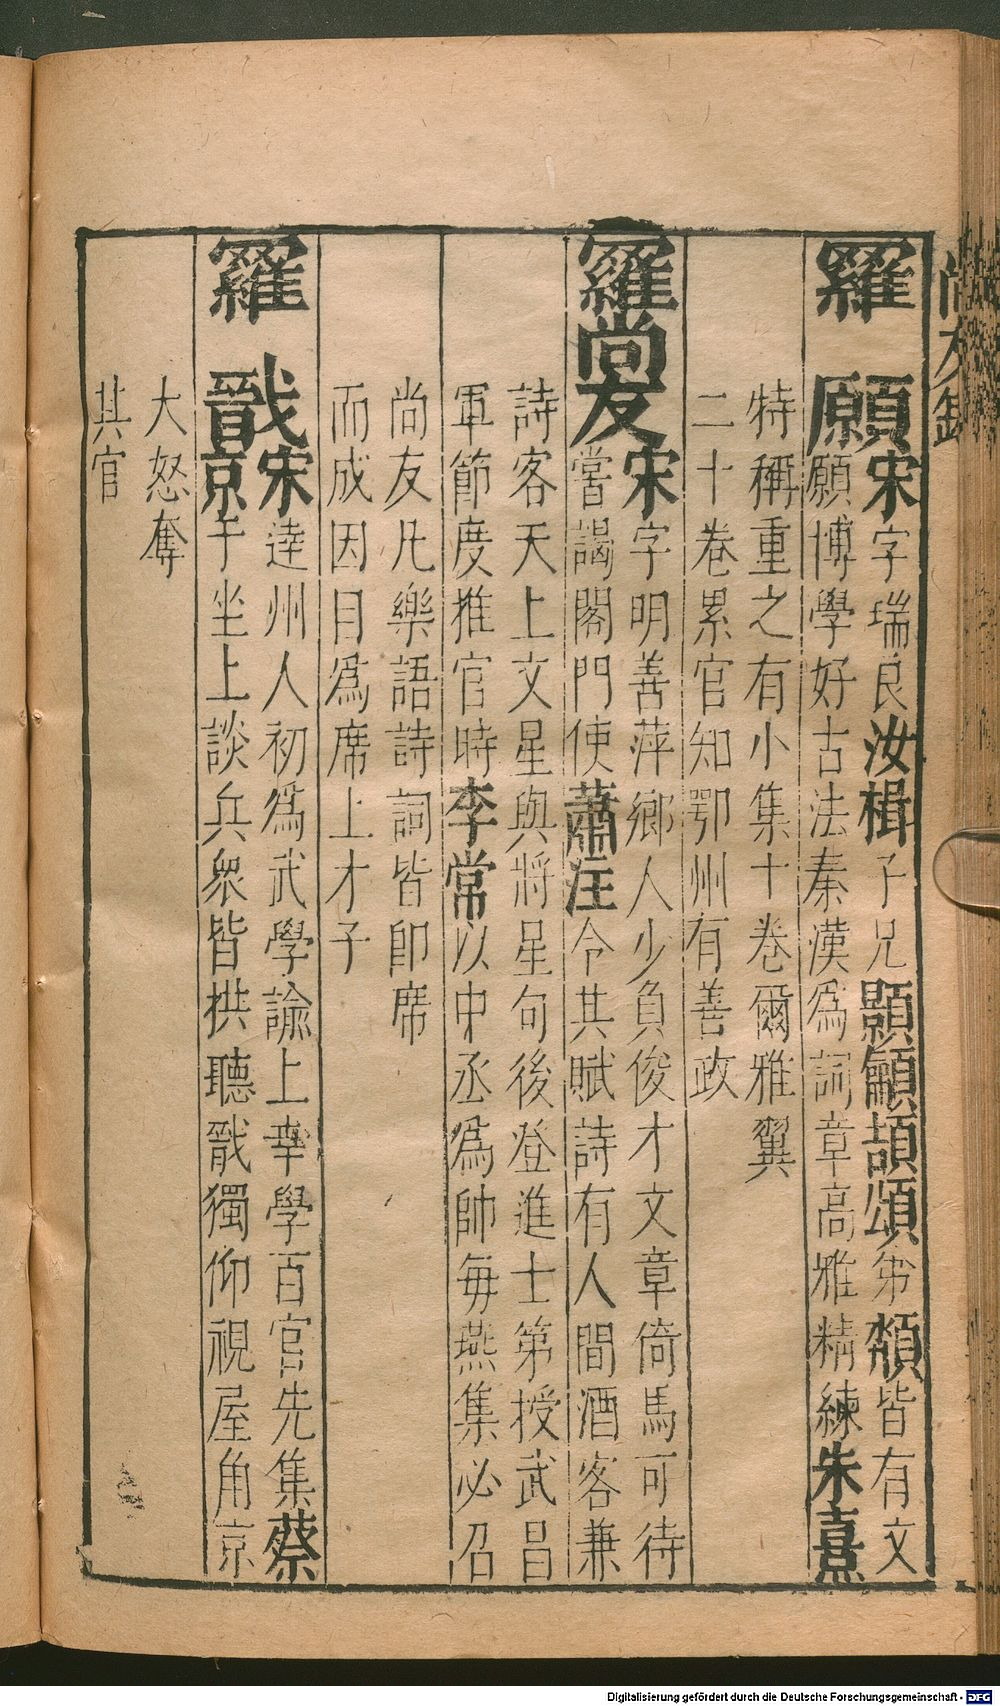 尚友錄
羅願宋字瑞良汝楫子兄顥籲頡頌弟頺皆有文
願博學好古法秦漢爲詞章高雅精練朱熹
特稱重之有小集十卷爾雅翼
二十卷累官知鄂州有善政
羅尚友宋字明善萍鄉人少負俊才文章倚馬可待
嘗謁閤門使蕭注令其賦詩有人間酒客兼
詩客天上文星與將星句後登進士第授武昌
軍節度推官時李常以中丞爲帥每燕集必召
尚友凡樂語詩詞皆卽席
而成因目爲席上才子
羅戩宋逹州人初爲武學諭上幸學百官先集蔡
京于坐上談兵衆皆拱聽戩獨仰視屋角京
大怒奪
其官
Digitalisierung gefördert durch die Deutsche Forschungsgemeinschaft - DFG